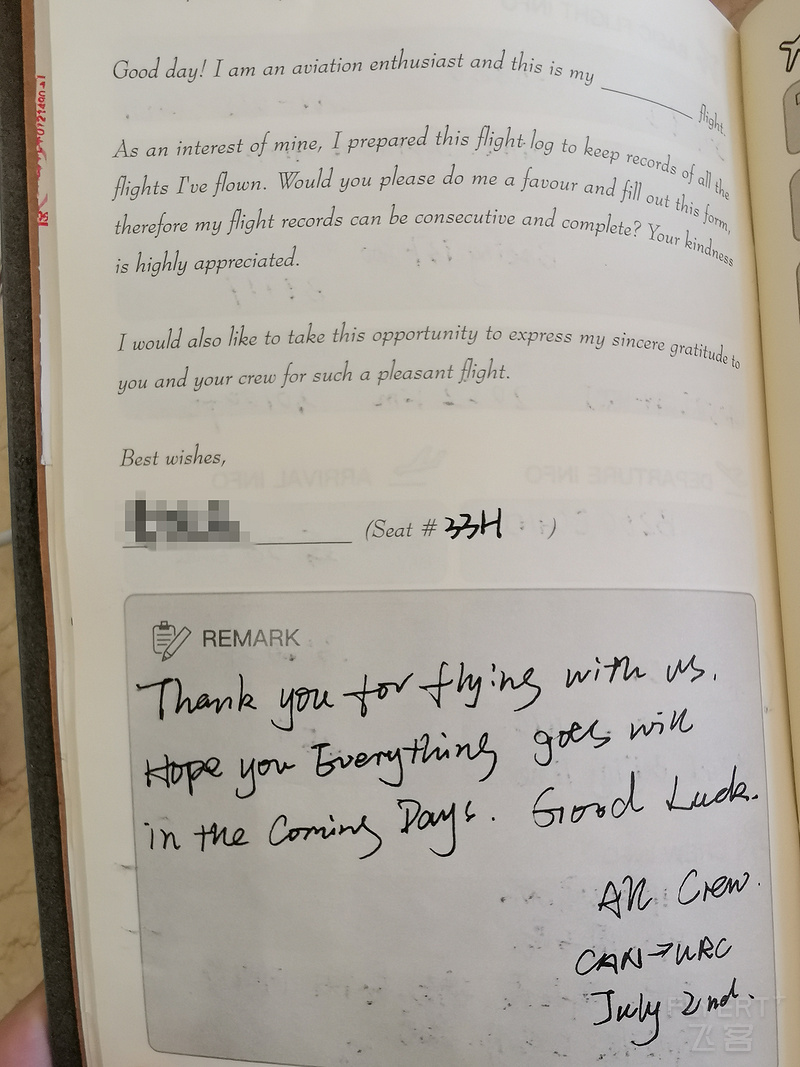 Good day! I am an aviation enthusiast and this is my ________ flight.
As an interest of mine, I prepared this flight log to keep records of all the
flights I've flown. Would you please do me a favour and fill out this form,
therefore my flight records can be consecutive and complete? Your kindness
is highly appreciated.
I would also like to take this opportunity to express my sincere gratitude to
you and your crew for such a pleasant flight.
Best wishes,
(Seat # 33H )
REMARK
Thank you for flying with us.
Hope you Everything goes will
in the Coming Days. Good Luck.
All Crew.
CAN→URC
July 2nd.
飞客